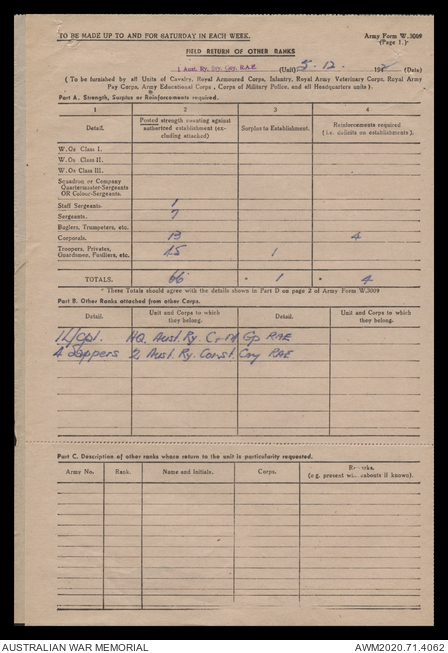 TO BE MADE UP TO AND FOR SATURDAY IN EACH WEEK.
Army Form W.3009
(Page 1.)
FIELD RETURN OF OTHER RANKS
1 Aust. Ry. Coy. RAE (Unit) 5.12. 194 (Date)
(To be furnished by all Units of Cavalry, Royal Armoured Corps, Infantry, Royal Army Veterinary Corps, Royal Army
Pay Corps, Army Educational Corps, Corps of Military Police, and all Headquarters units).
Part A. Strength, Surplus or Reinforcements required.
1 2 3 4
Detail. Posted strength counting against authorized establishment (excluding attached) Surplus to Establishment. Reinforcements required (i.e. deficits on establishments).
W.Os Class I.
W.Os Class II.
W.Os Class III.
Squadron or Company
Quartermaster-Sergeants
OR Colour-Sergeants.
Staff Sergeants. 1
Sergeants. 7
Buglers, Trumpeters, etc.
Corporals. 13 4
Troopers, Privates,
Guardsmen, Fusiliers, etc. 45 1
TOTALS. 66 * 1 * 4
* These Totals should agree with the details shown in Part D on page 2 of Army Form W.3009
Part B. Other Ranks attached from other Corps.
Detail. Unit and Corps to which they belong. Detail. Unit and Corps to which they belong.
1 L/Cpl. HQ. Aust. Ry. Gp RAE
4 Sappers 2 Aust. Ry. Const. Coy RAE
Part C. Description of other ranks whose return to the unit is particularity requested.
Army No. Rank. Name and Initials. Corps. Remarks.
(e.g. present whereabouts if known).
AUSTRALIAN WAR MEMORIAL AWM2020.71.4062